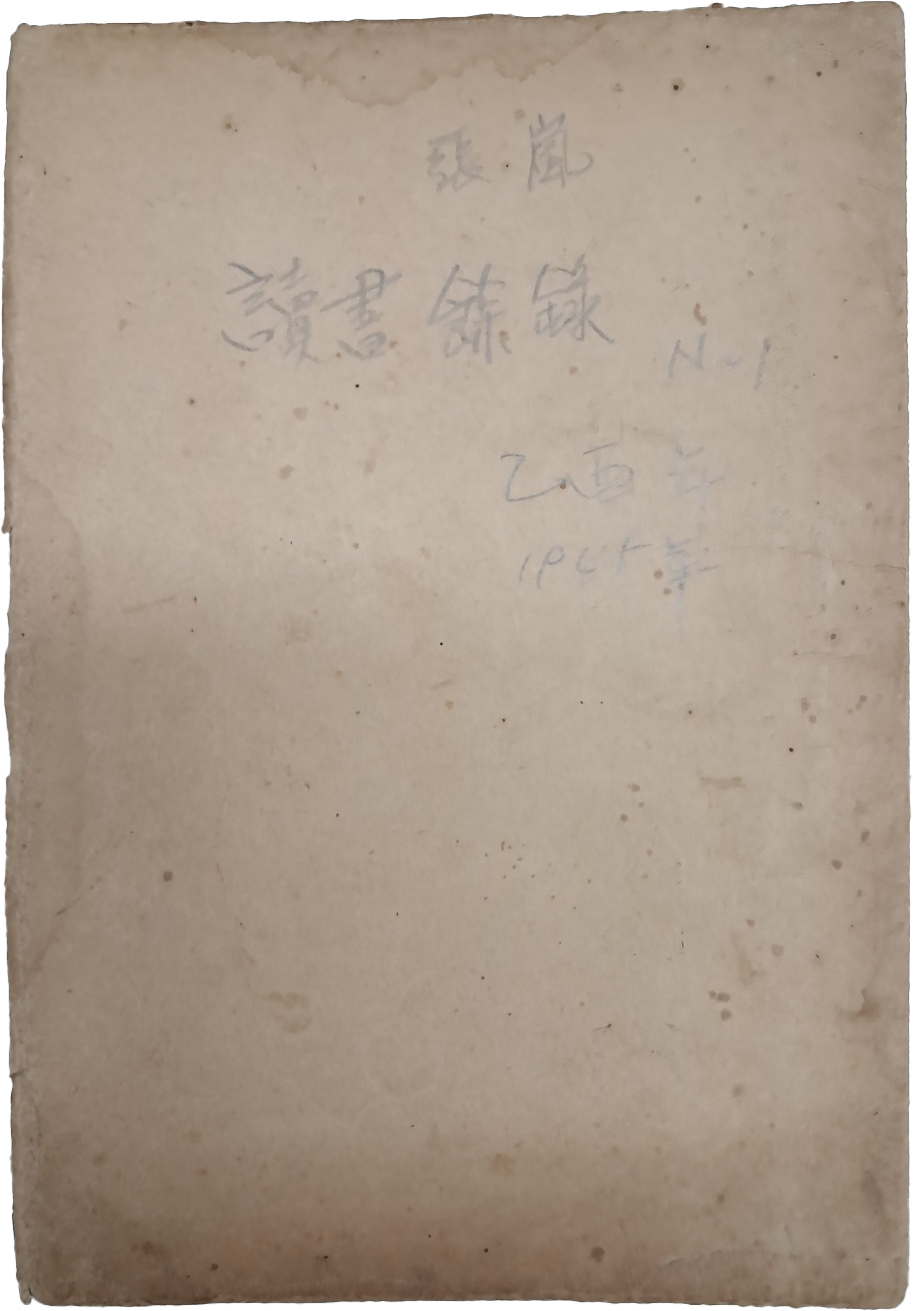 張嵐
讀書餘錄
No1
乙酉年
1945年